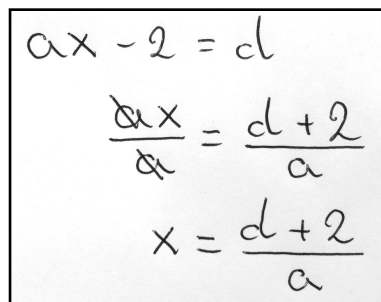 ax - 2 = d
ax/a = (d + 2)/a
x = (d + 2)/a